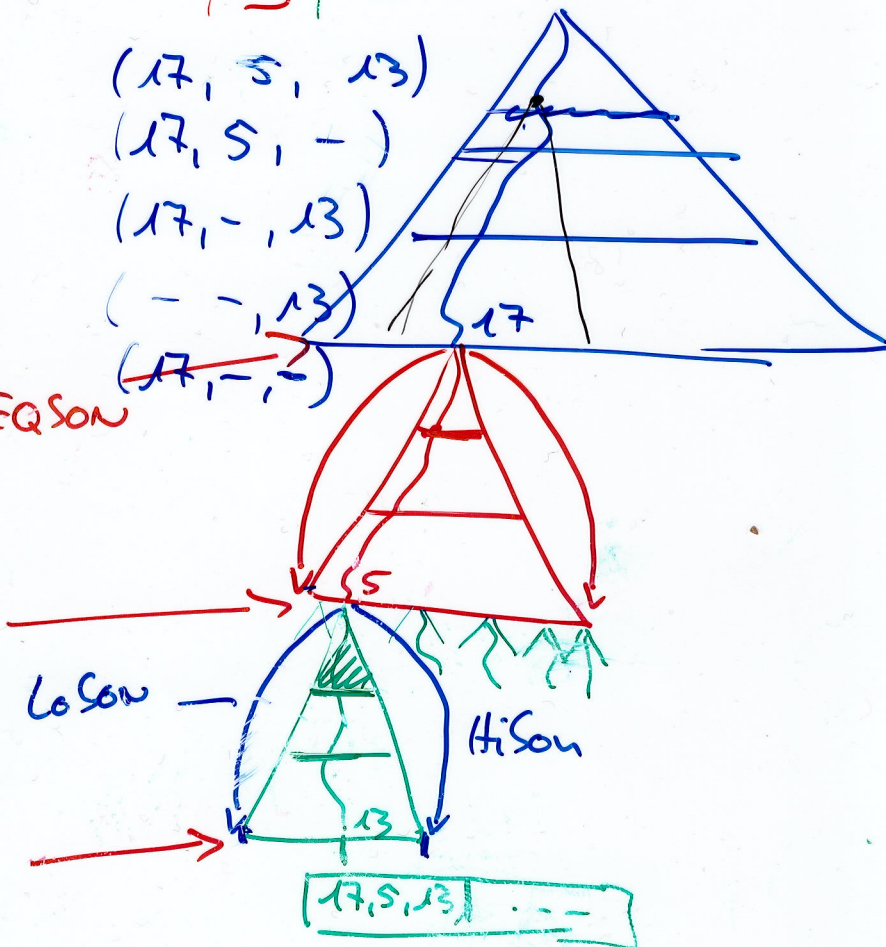 (17, 5, 13)
(17, 5, -)
(17, -, 13)
(- -, 13)
17
(17, -, -)
EQSON
5
LoSON
HiSon
13
17,5,13 ---